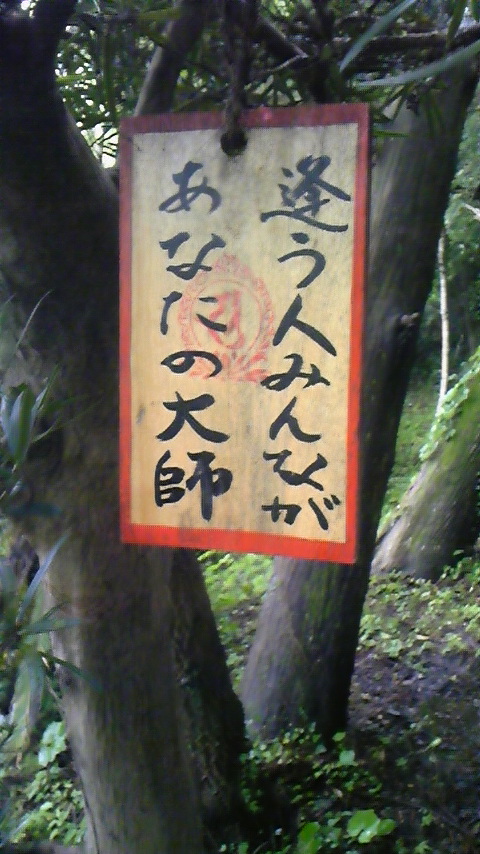 逢う人みんなが
あなたの大師